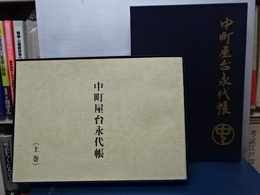 中町屋台永代帳
（上巻）
中町屋台永代帳
中